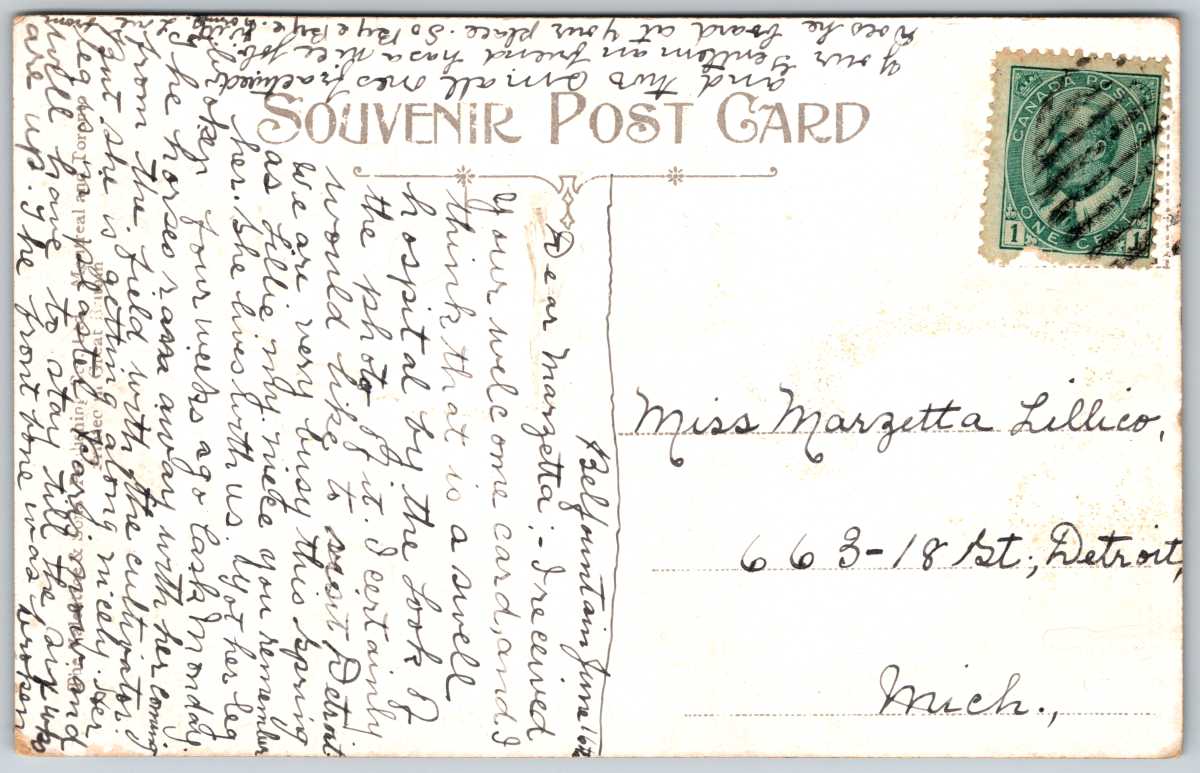 SOUVENIR POST CARD
CANADA POSTAGE
ONE CENT
1 1
Miss Marzetta Lillico,
663-18 St, Detroit,
Mich.,
Belfountain June 10th
Dear Marzetta:- I received
your welcome card, and I
think that is a swell
hospital by the look of
the photo of it. I certainly
would like to visit Detroit
we are very busy this spring
as Lillie my niece you remember
her. She lives with us. Got her leg
broken four weeks ago last Monday
The horses ran away with her coming
from the field with the cultivator
but she is getting along nicely. Her
leg is in a plaster now and
will have to stay till the
are up. The front bone was broken
and two small ones fractured
your gentleman friend has a nice job.
Does he board at your place. So Bye Bye. Will